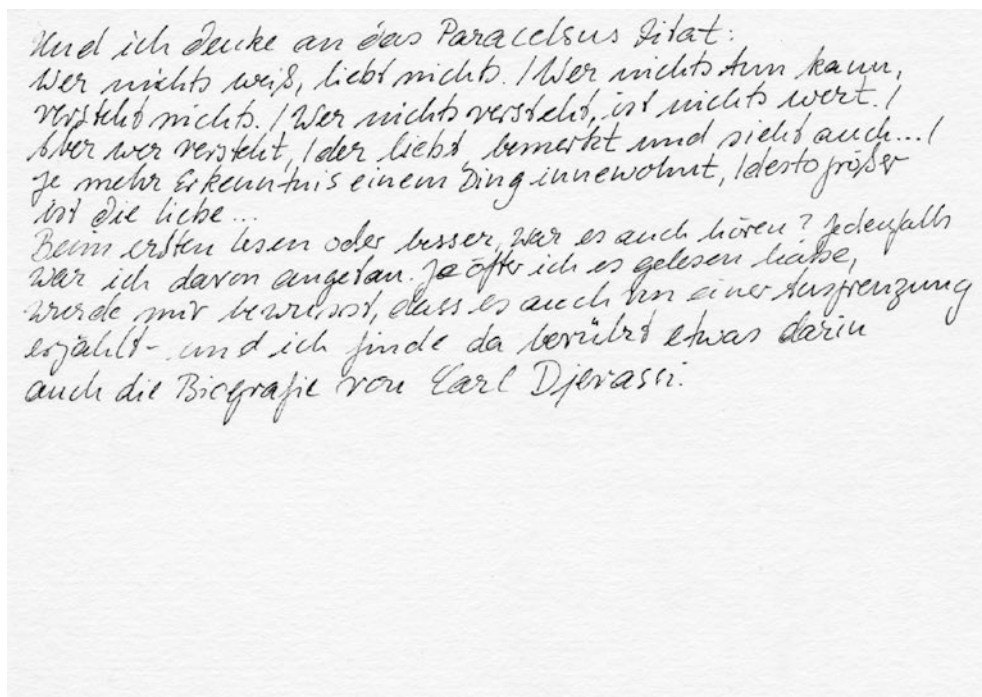 Und ich denke an das Paracelsus Zitat:
Wer nichts weiß, liebt nichts. / Wer nichts tun kann,
versteht nichts. / Wer nichts versteht, ist nichts wert. /
Aber wer versteht, / der liebt, bemerkt und sieht auch... /
Je mehr Erkenntnis einem Ding innewohnt, / desto größer
ist die Liebe...
Beim ersten Lesen oder besser, war es auch hören? Jedenfalls
war ich davon angetan. Je öfter ich es gelesen habe,
wurde mir bewusst, dass es auch von einer Ausgrenzung
erzählt - und ich finde da berührt etwas darin
auch die Biografie von Carl Djerassi.